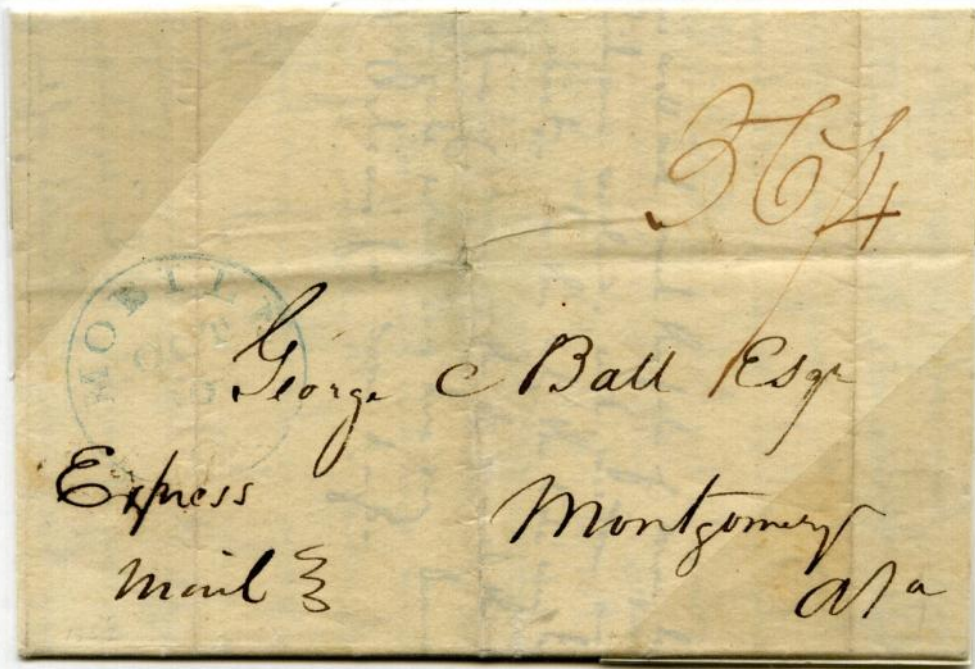 564
MOBILE
OCT
George C Ball Esqr
Express
Mail
Montgomery
Ala